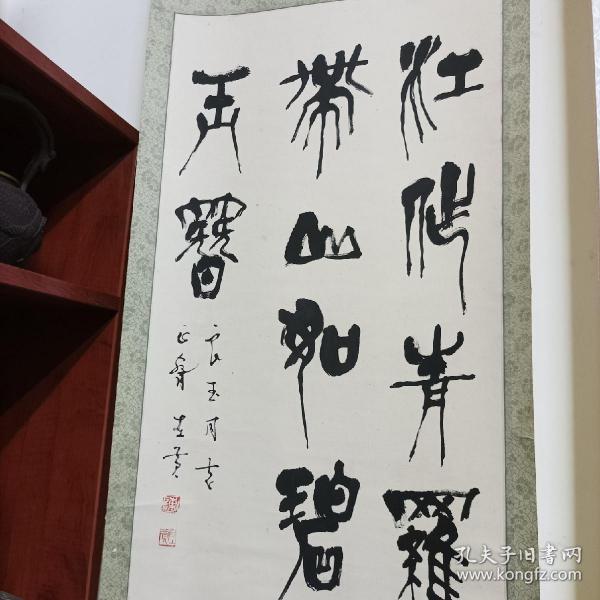 江作青羅
帶山如碧
玉簪
良玉同志
正腕
孔夫子旧书网
www.kongfz.com